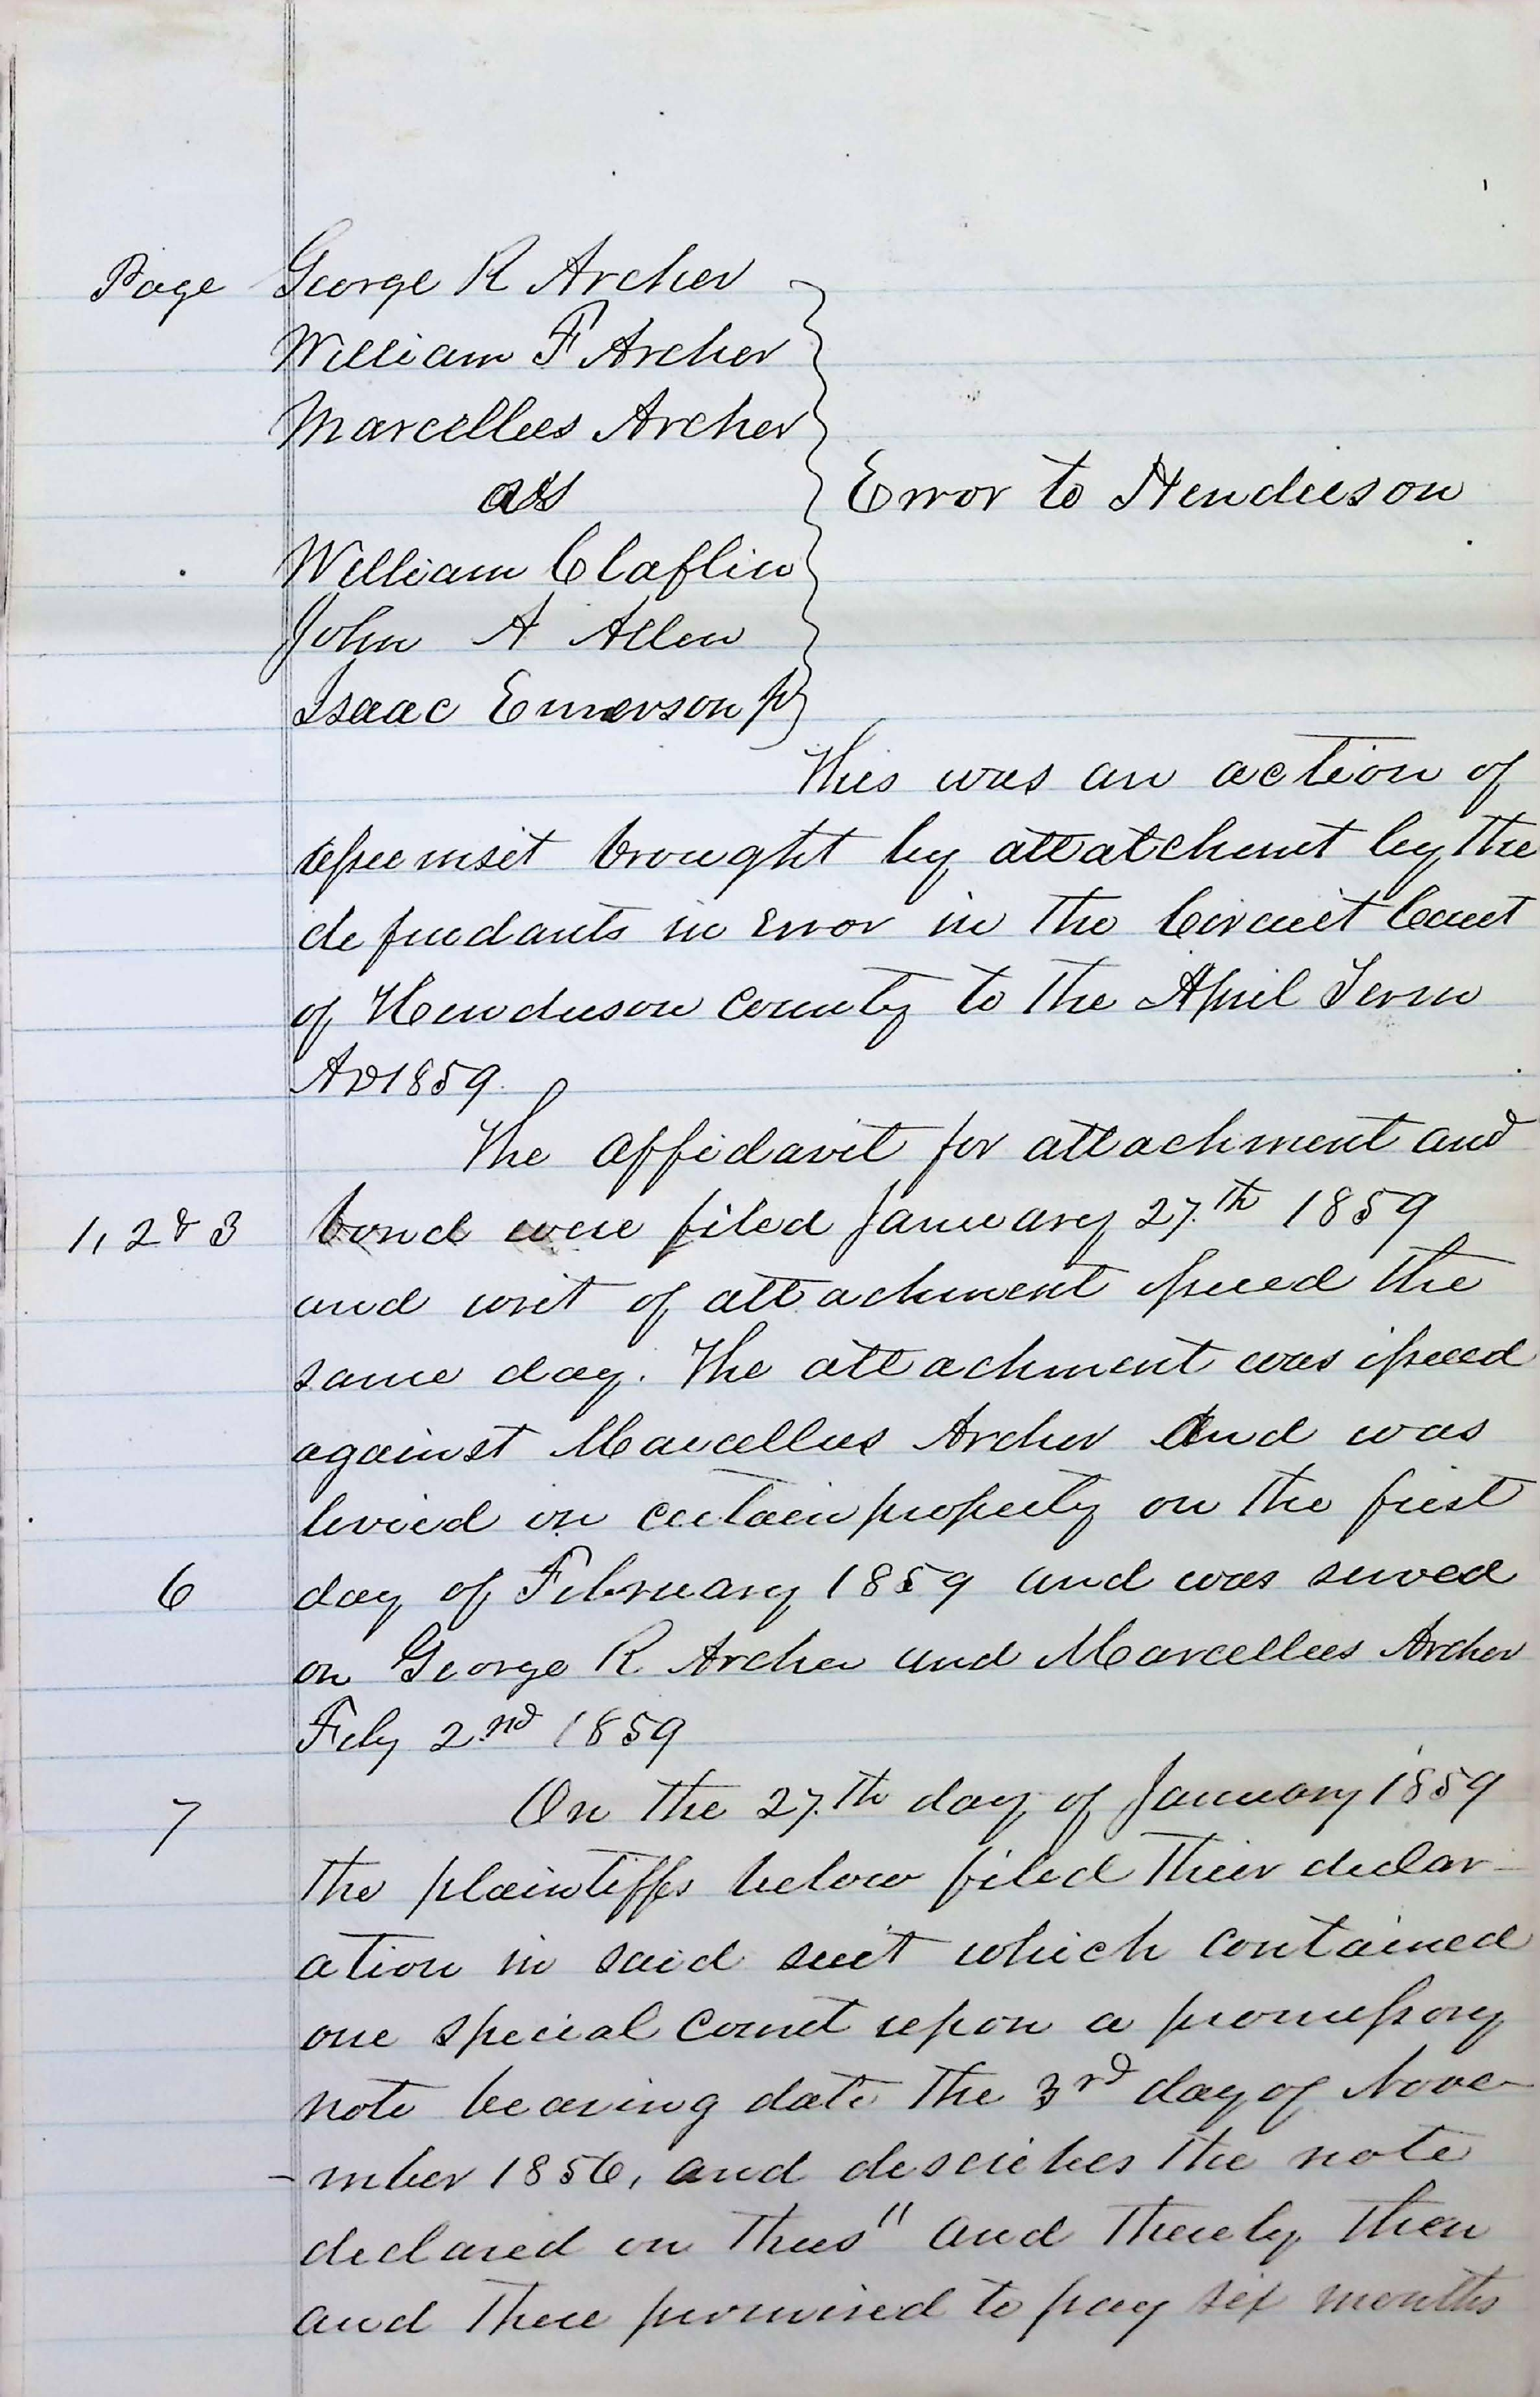 Page George R Archer
William F Archer
Marcellus Archer
vs
Error to Henderson
William Claflin
John A Allen
Isaac Emmerson Jr
This was an action of
assumsit brought by attatchmt by the
defendants in error in the Circuit Court
of Henderson County to the April Term
AD 1859.
The affidavit for attachment and
1, 2 & 3 bond were filed January 27.th 1859
and writ of attachment issued the
same day. The attachment was issued
against Marcellus Archer and was
levied on certain property on the first
6 day of February 1859 and was served
on George R Archer and Marcellus Archer
Feby 2.nd 1859
7 On the 27.th day of January 1859
the plaintiffs below filed their declar-
ation in said suit which contained
one special count upon a promissory
note bearing date the 3rd day of Nove-
-mber 1856, and describes the note
declared on thus " and thereby then
and there promised to pay six months